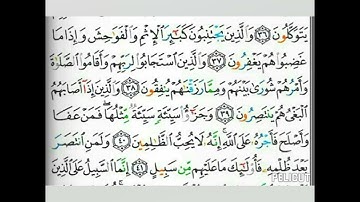 يَتَوَكَّلُونَ ٣٦ وَالَّذِينَ يَجْتَنِبُونَ كَبَٰٓئِرَ الْإِثْمِ وَالْفَوَاحِشَ وَإِذَا مَا
غَضِبُوا هُمْ يَغْفِرُونَ ٣٧ وَالَّذِينَ اسْتَجَابُوا لِرَبِّهِمْ وَأَقَامُوا الصَّلَاةَ
وَأَمْرُهُمْ شُورَىٰ بَيْنَهُمْ وَمِمَّا رَزَقْنَاهُمْ يُنفِقُونَ ٣٨ وَالَّذِينَ إِذَا أَصَابَهُمُ
الْبَغْيُ هُمْ يَنتَصِرُونَ ٣٩ وَجَزَٰٓؤُا سَيِّئَةٍ سَيِّئَةٌ مِّثْلُهَا ۖ فَمَنْ عَفَا
وَأَصْلَحَ فَأَجْرُهُ عَلَى اللَّهِ ۚ إِنَّهُ لَا يُحِبُّ الظَّٰلِمِينَ ٤٠ وَلَمَنِ انتَصَرَ
بَعْدَ ظُلْمِهِ فَأُو۟لَٰٓئِكَ مَا عَلَيْهِم مِّن سَبِيلٍ ٤١ إِنَّمَا السَّبِيلُ عَلَى الَّذِينَ